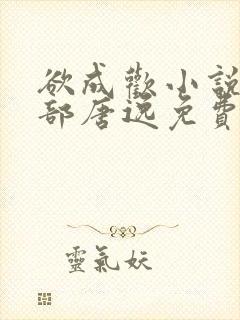 欲成歡小說
部唐逸免費
靈氣妖